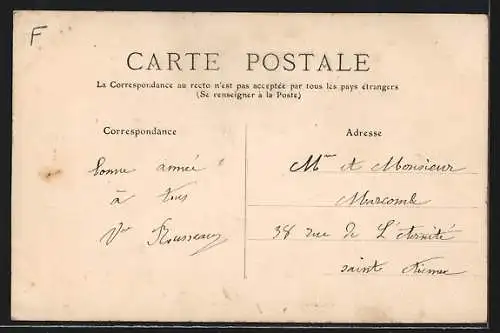 F
CARTE POSTALE
La Correspondance au recto n'est pas acceptée par tous les pays étrangers
(Se renseigner à la Poste)
Correspondance
bonne année
à tous
Vve Rousseau
Adresse
Mme et Monsieur
38 rue de L'éternité
sainte